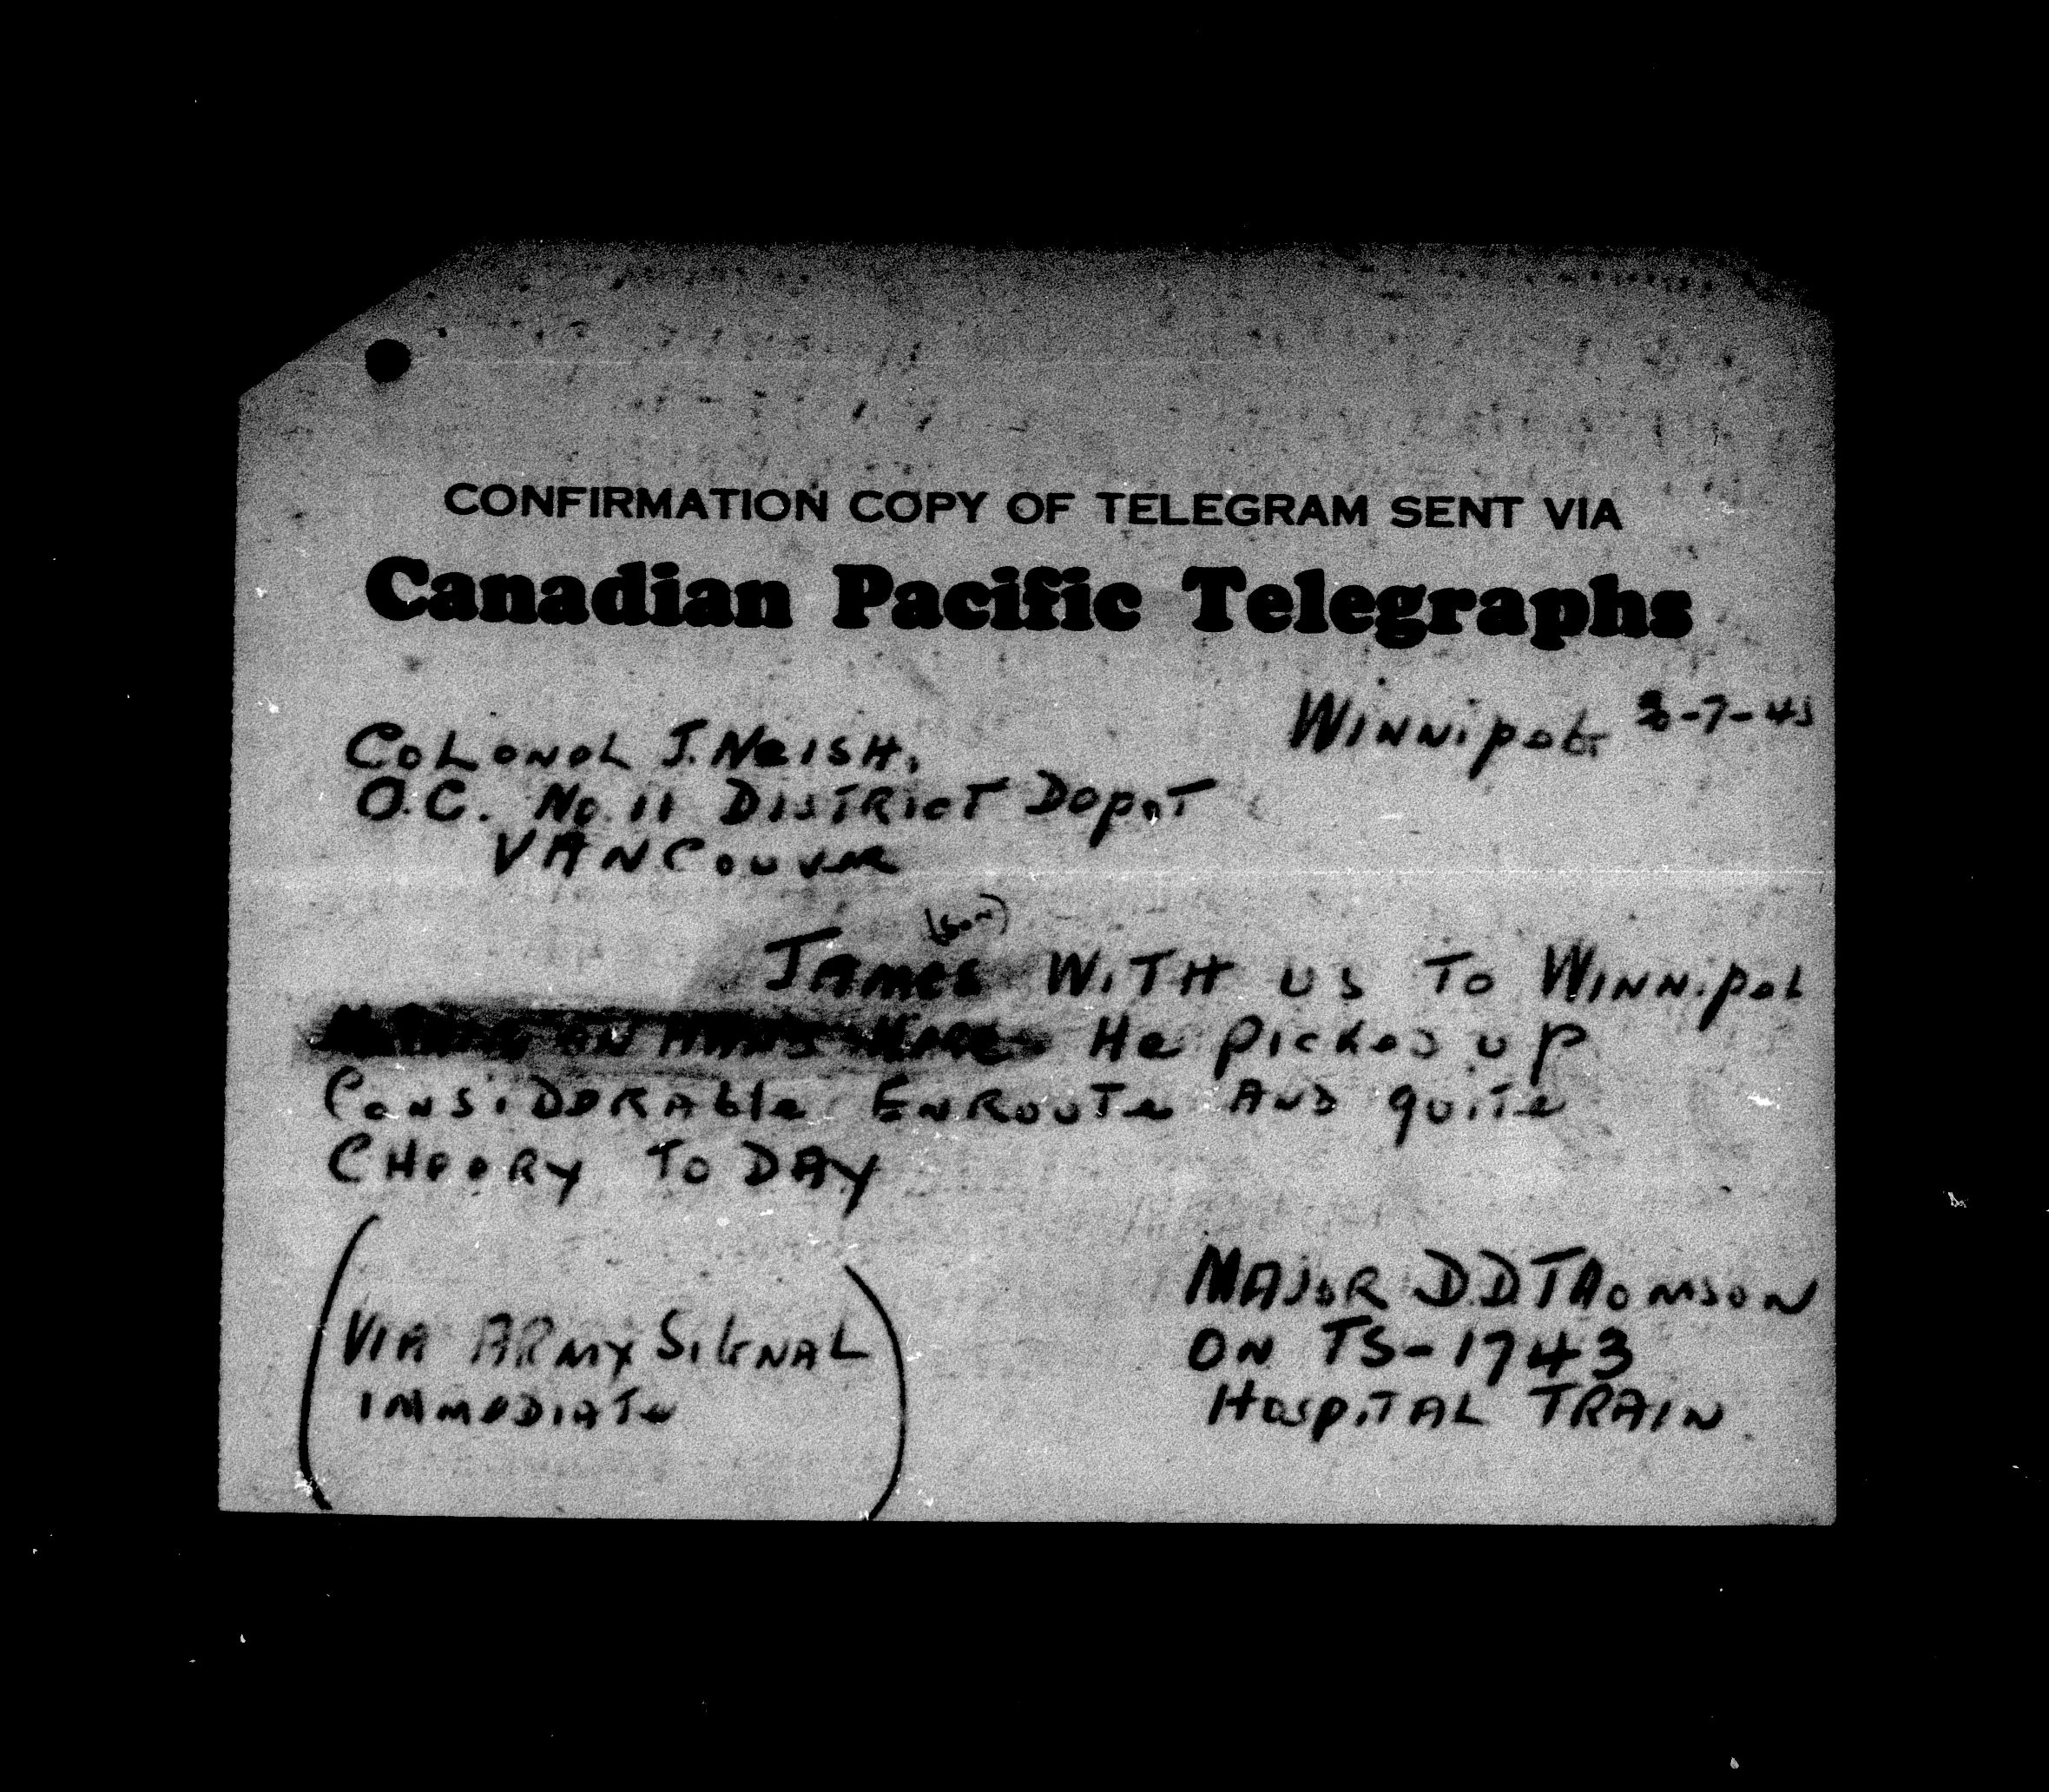 CONFIRMATION COPY OF TELEGRAM SENT VIA
Canadian Pacific Telegraphs
Winnipeg 3-7-45
Colonel J. Neish,
O.C. No. 11 District Depot
Vancouver
(son)
James with us to Winnipeg
He picked up
considerable enroute and quite
cheery to day
Major D.D Thomson
on TS-1743
Hospital Train
(Via Army Signal
immediate)